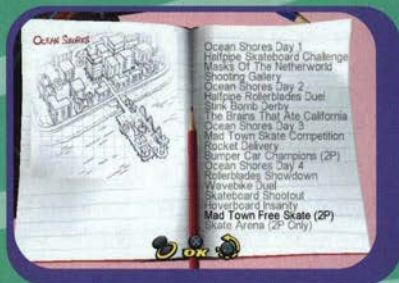 OCEAN SHORES
Ocean Shores Day 1
Halfpipe Skateboard Challenge
Masks Of The Netherworld
Shooting Gallery
Ocean Shores Day 2
Halfpipe Rollerblades Duel
Stink Bomb Derby
The Brains That Ate California
Ocean Shores Day 3
Mad Town Skate Competition
Rocket Delivery
Bumper Car Champions (2P)
Ocean Shores Day 4
Rollerblades Showdown
Wavebike Duel
Skateboard Shootout
Hoverboard Insanity
Mad Town Free Skate (2P)
Skate Arena (2P Only)
OK